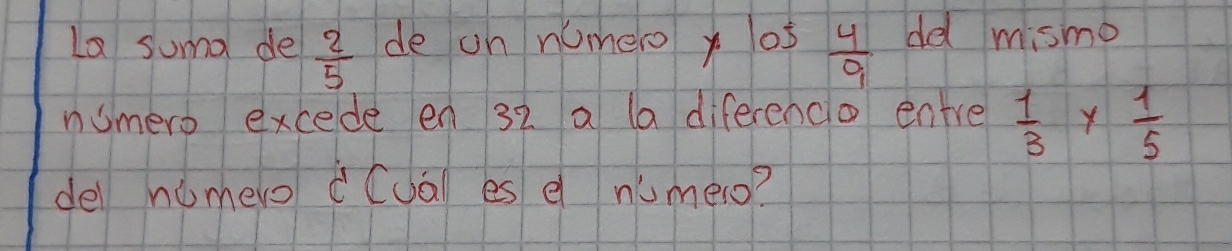 La suma de 2/5 de un número y los 4/9 del mismo
número excede en 32 a la diferencia entre 1/3 y 1/5
del número ¿Cuál es el número?